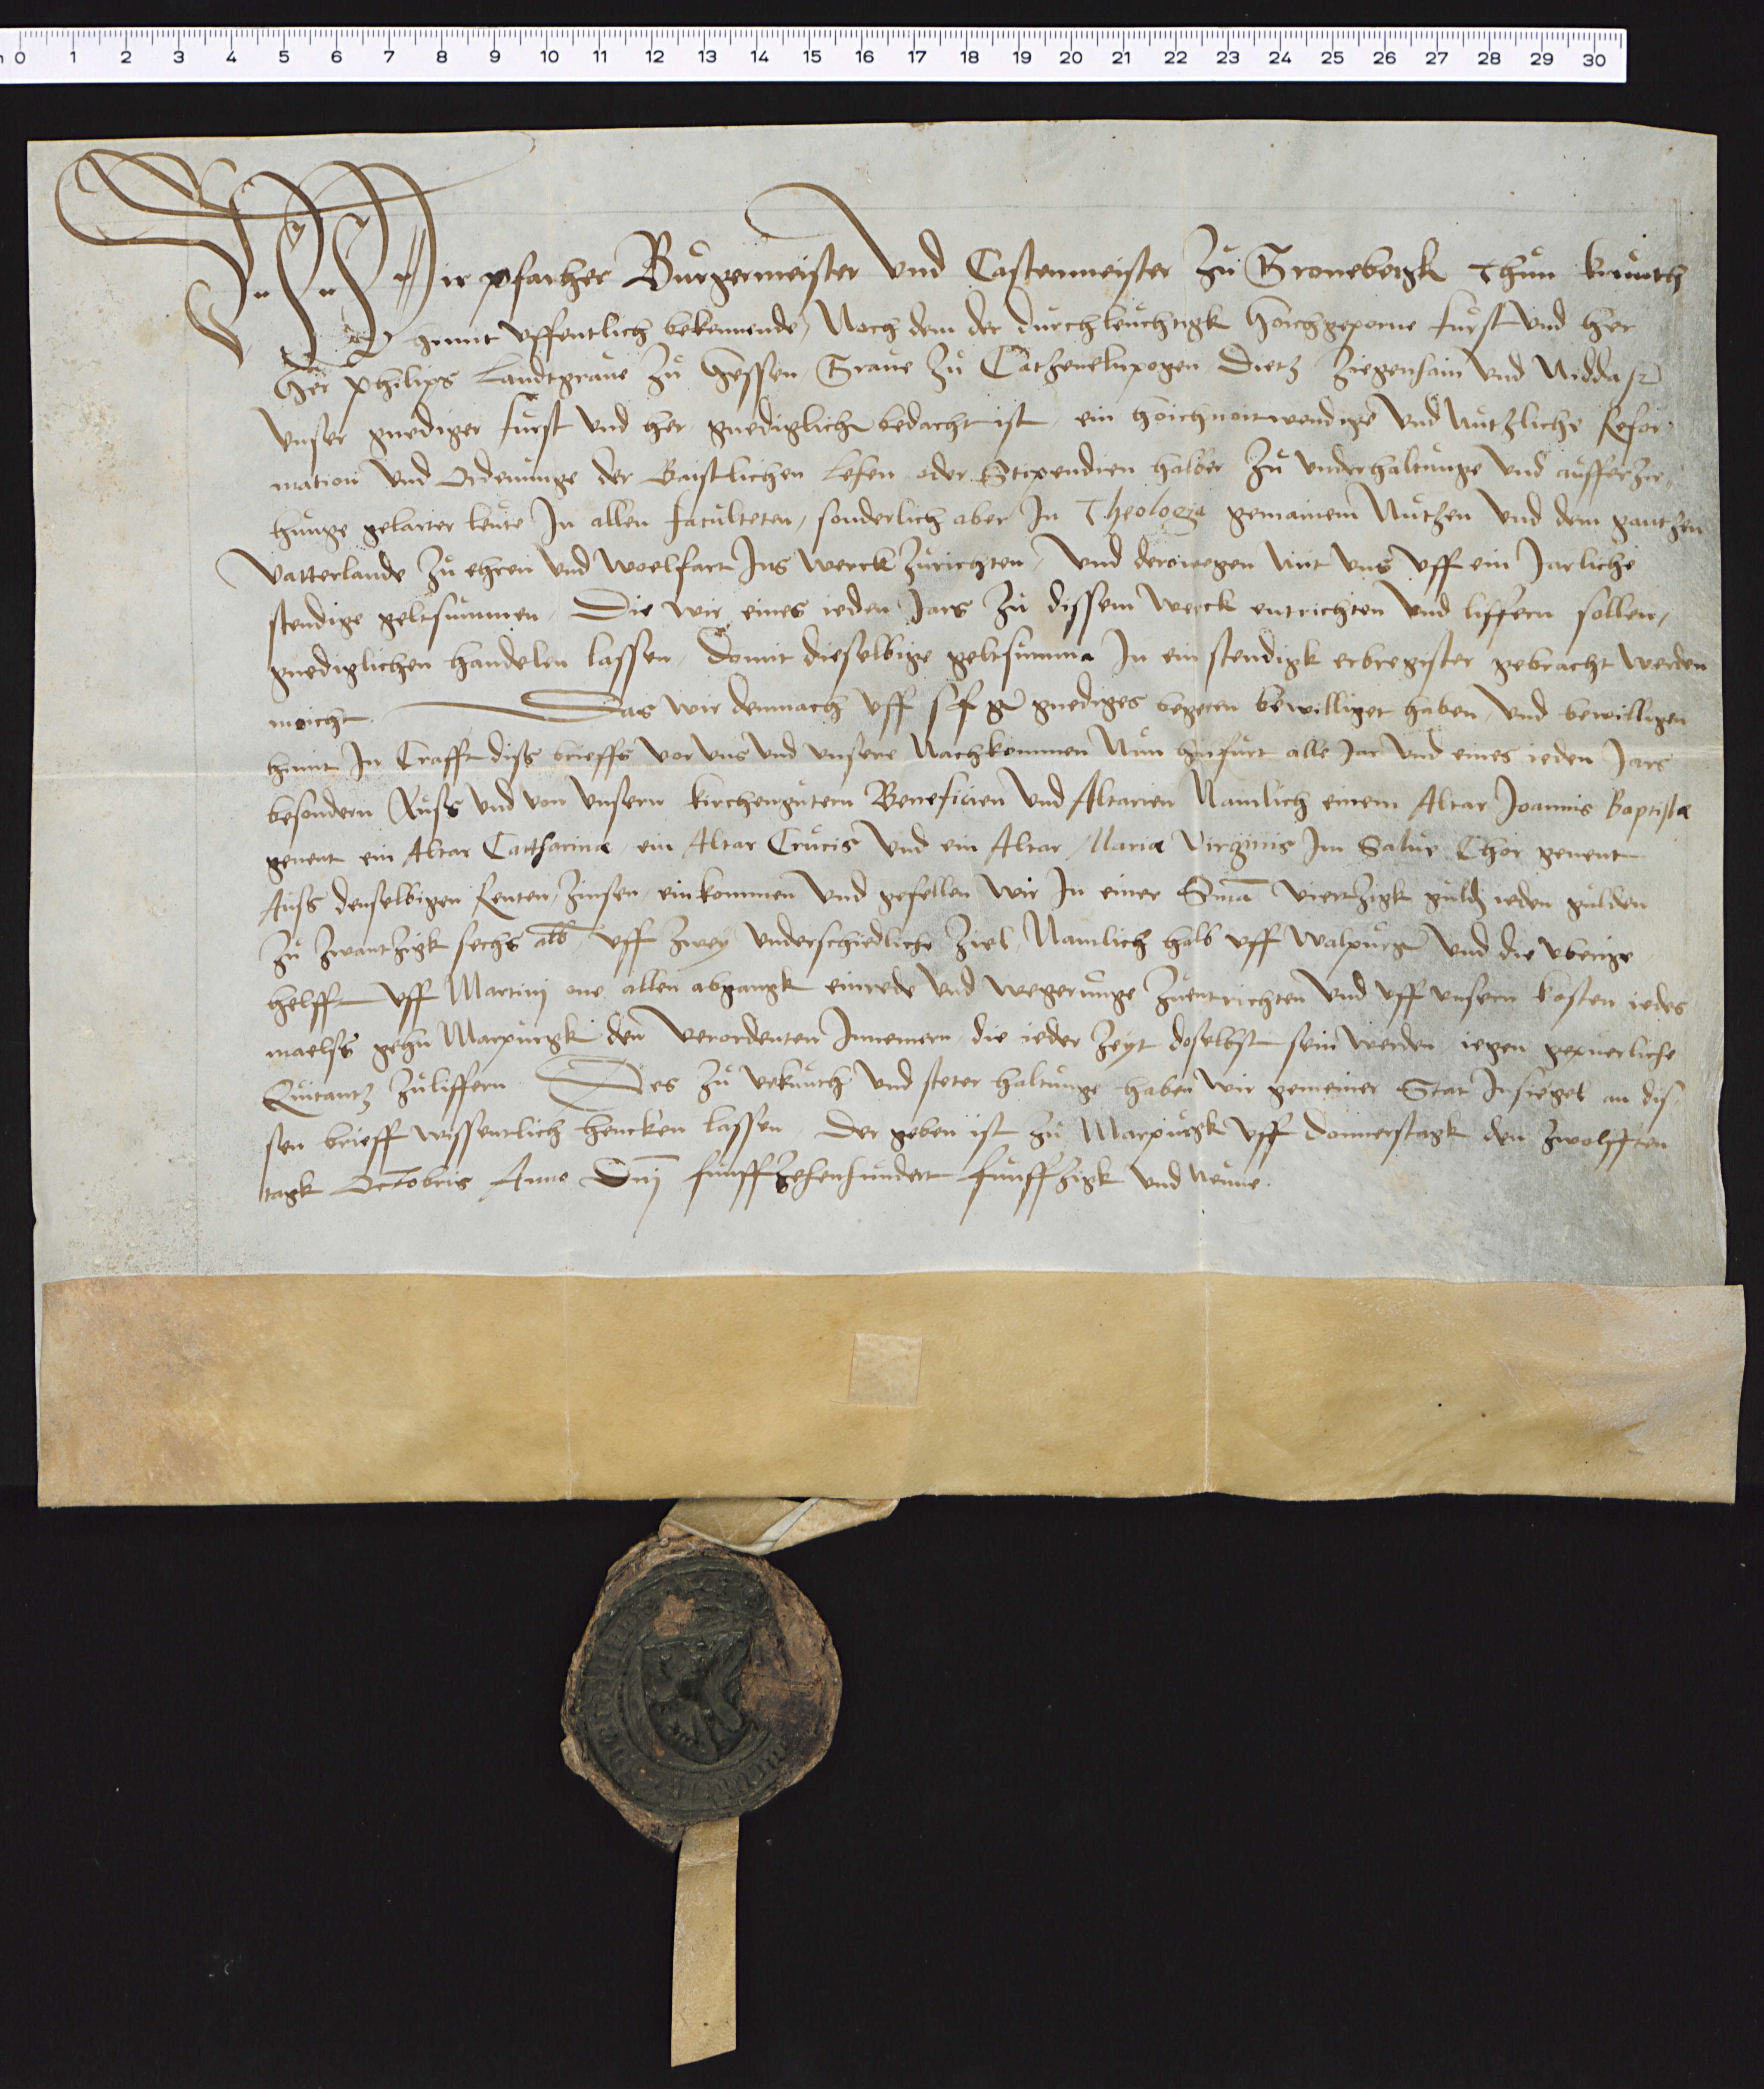 0 1 2 3 4 5 6 7 8 9 10 11 12 13 14 15 16 17 18 19 20 21 22 23 24 25 26 27 28 29 30
Wir pfarher Burgermeister Vnd Castenmeister Zu Gronebergk Thun kunth
hiemit vffentlich bekennende, Nach dem der durchleuchtigk Hoichgeporne furst vnd her
Her Philips Landtgraue Zu Hessen Graue Zu Catzenelnpogen Dietz Ziegenhain vnd Nidda
Vnser gnediger furst vnd her gnediglich bedacht ist, ein hoichnoitwendige vnd nutzliche Refor
mation vnd Ordenunge der Gaistlichen Lehen oder Stipendien halber Zu vnderhaltunge vnd aufferzie
hunge gelarter leute In allen faculteten, sonderlich aber In Theologia gemainem Nutzen vnd dem gantzen
Vatterlande Zu ehren vnd woelfart Ins werck Zurichten, Vnd derowegen mit vns vff ein Jarliche
stendige geltsummen, Die wir eines ieden Jars Zu dissem werck entrichten vnd liffern sollen,
gnediglichen handelen lassen, Domit dieselbige geltsumma In ein stendigk erbregister gebracht werden
moicht. Das wir demnach vff s f g gnediges begeren bewilliget haben, vnd bewilligen
hiemit In Crafft diss brieffs vor vns vnd vnsere Nachkommen Nun hinfurt alle Jar vnd eines ieden Jars
besondern Auss vnd von vnsern kirchengutern Beneficien vnd Altarien Namlich einem Altar Joannis Baptistæ
genent ein Altar Catharinæ, ein Altar Crucis vnd ein Altar Mariæ Virginis Im Chor genent
Auss denselbigen Renten, Zinsen, einkommen vnd gefellen wir In einer Sma viertzigk guld ieden gulden
Zu Zwantzigk sechs alb vff Zwey vnderschiedliche Ziel, Namlich halb vff Walpurg vnd die vberige
helfft vff Martinj one allen abgangk einrede vnd wegerunge Zuentrichten vnd vff vnsern kosten iedes
maelss gehn Marpurgk den verordenten Innemern, die ieder Zeyt doselbst sein werden, iegen gepuerliche
Quitantz Zuliffern. Des Zu vrkunth vnd steter haltunge haben wir gemeiner Stat Insiegel an dis
sen brieff wissentlich hencken lassen Der geben ist Zu Marpurgk vff Donnerstagk den Zwolfften
tagk Octobris Anno Dnj funffzehenhundert funffzigk vnd Neune.